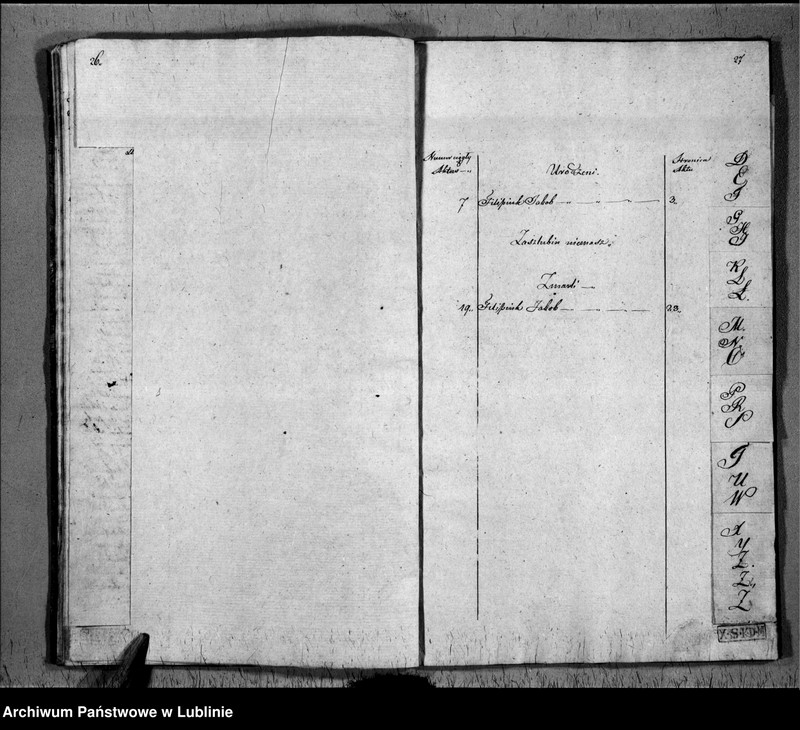 26.
27
Numer
Aktu
Urodzeni.
Stronica
Aktu
7 Filipiuk Jakob — „ — „ — 3.
Zaślubin niemasz.
Zmarli —
19. Filipiuk Jakob — — — 23.
D
E
F
G
H
J
K
L
Ł
M.
N
O
P
R
S
T
U
W
X
Y
Z
Ż
Archiwum Państwowe w Lublinie